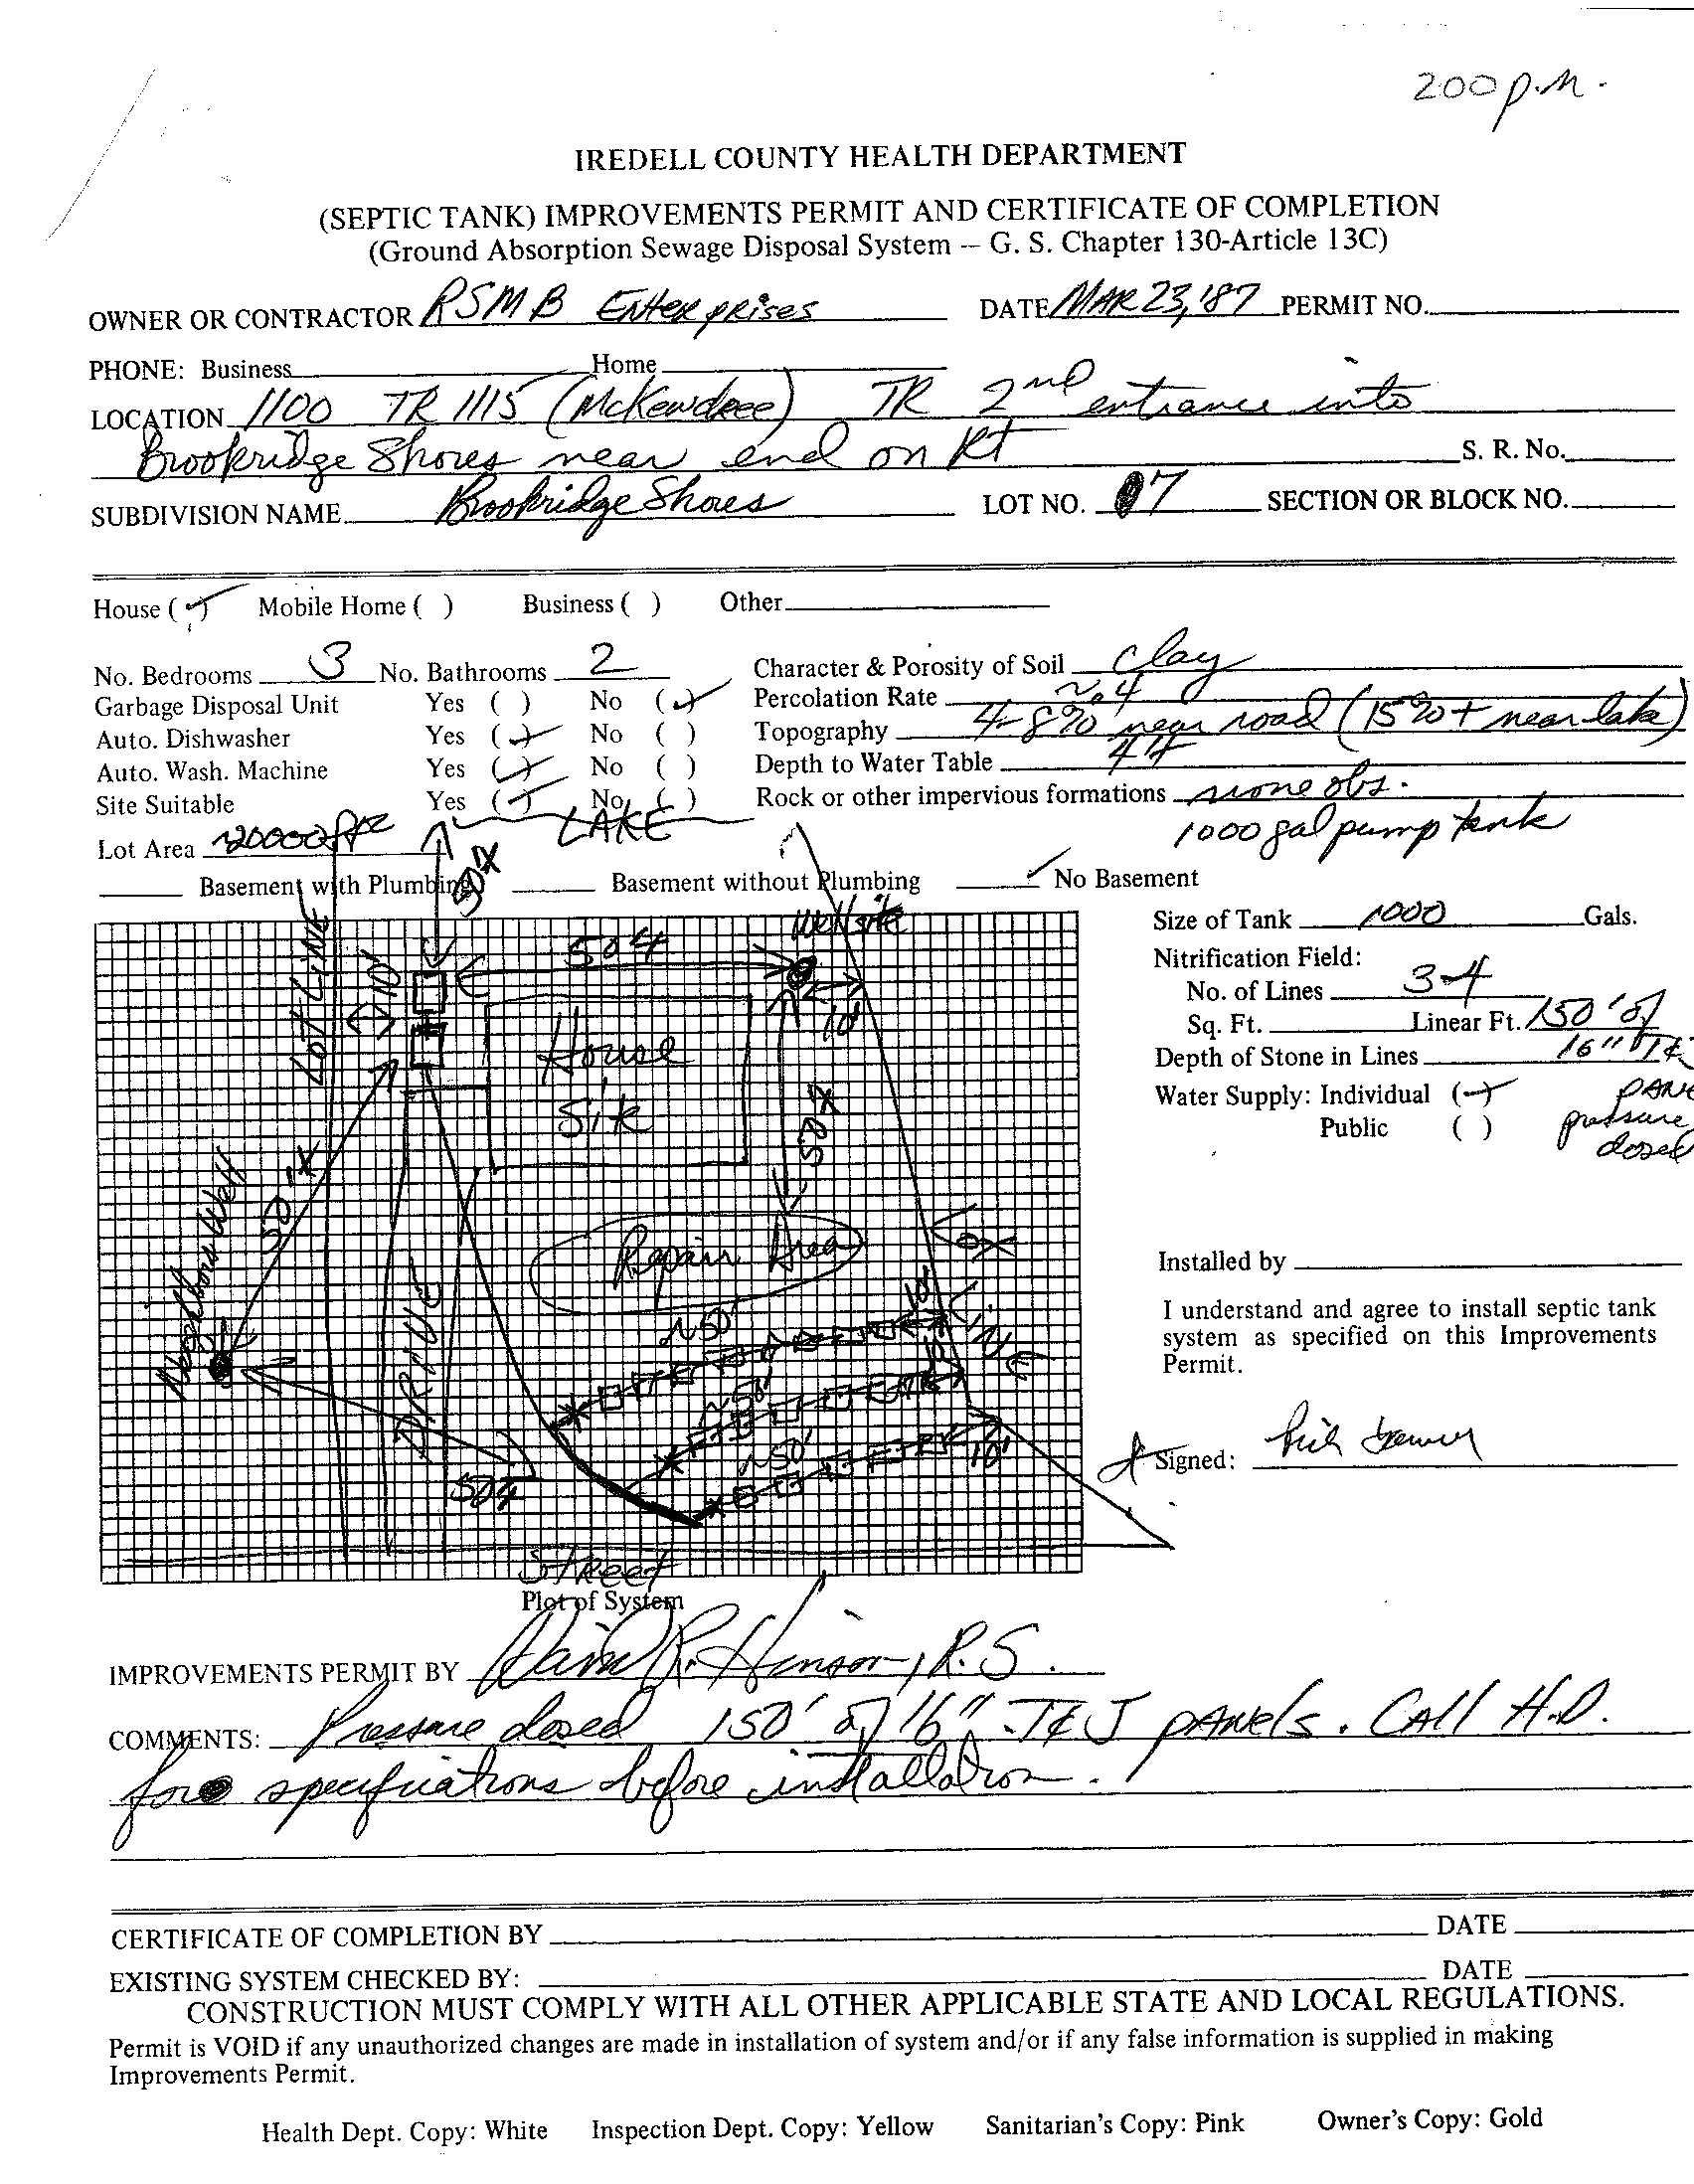 200 p.m.
IREDELL COUNTY HEALTH DEPARTMENT
(SEPTIC TANK) IMPROVEMENTS PERMIT AND CERTIFICATE OF COMPLETION
(Ground Absorption Sewage Disposal System -- G. S. Chapter 130-Article 13C)
OWNER OR CONTRACTOR RSMB Enterprises DATE MAR 23, '87 PERMIT NO.
PHONE: Business Home
LOCATION 1100 TR 1115 (McKendree) TR 2nd entrance into
Brookridge Shores near end on Rt S. R. No.
SUBDIVISION NAME Brookridge Shores LOT NO. 7 SECTION OR BLOCK NO.
House (✓) Mobile Home ( ) Business ( ) Other
No. Bedrooms 3 No. Bathrooms 2 Character & Porosity of Soil Clay
Garbage Disposal Unit Yes ( ) No (✓) Percolation Rate ~.4
Auto. Dishwasher Yes (✓) No ( ) Topography 4-8% near road (15%+ near lake)
Auto. Wash. Machine Yes (✓) No ( ) Depth to Water Table 4'+
Site Suitable Yes (✓) No ( ) Rock or other impervious formations none obs.
LAKE 1000 gal pump tank
Lot Area ~20000 ft2
50'+
Basement with Plumbing Basement without Plumbing ✓ No Basement
Well site Size of Tank 1000 Gals.
LOT LINE 10' 50'+ Nitrification Field:
No. of Lines 3-4
10' Sq. Ft. Linear Ft. 150' of
House Depth of Stone in Lines 16" T&J
Site 50'+ Water Supply: Individual (✓) PANE
Public ( ) pressure
dosed
Neighbors Well 50'+
Repair Area
Installed by
DRIVE ~50' 10'
I understand and agree to install septic tank
system as specified on this Improvements
Permit.
~50' 10'
~50' 10'
Signed:
50'+
Street
Plot of System
IMPROVEMENTS PERMIT BY David R. Hinson, R.S.
COMMENTS: Pressure dosed 150' of 16" T&J PANELS. CALL H.D.
for specifications before installation.
CERTIFICATE OF COMPLETION BY DATE
EXISTING SYSTEM CHECKED BY: DATE
CONSTRUCTION MUST COMPLY WITH ALL OTHER APPLICABLE STATE AND LOCAL REGULATIONS.
Permit is VOID if any unauthorized changes are made in installation of system and/or if any false information is supplied in making
Improvements Permit.
Health Dept. Copy: White Inspection Dept. Copy: Yellow Sanitarian's Copy: Pink Owner's Copy: Gold